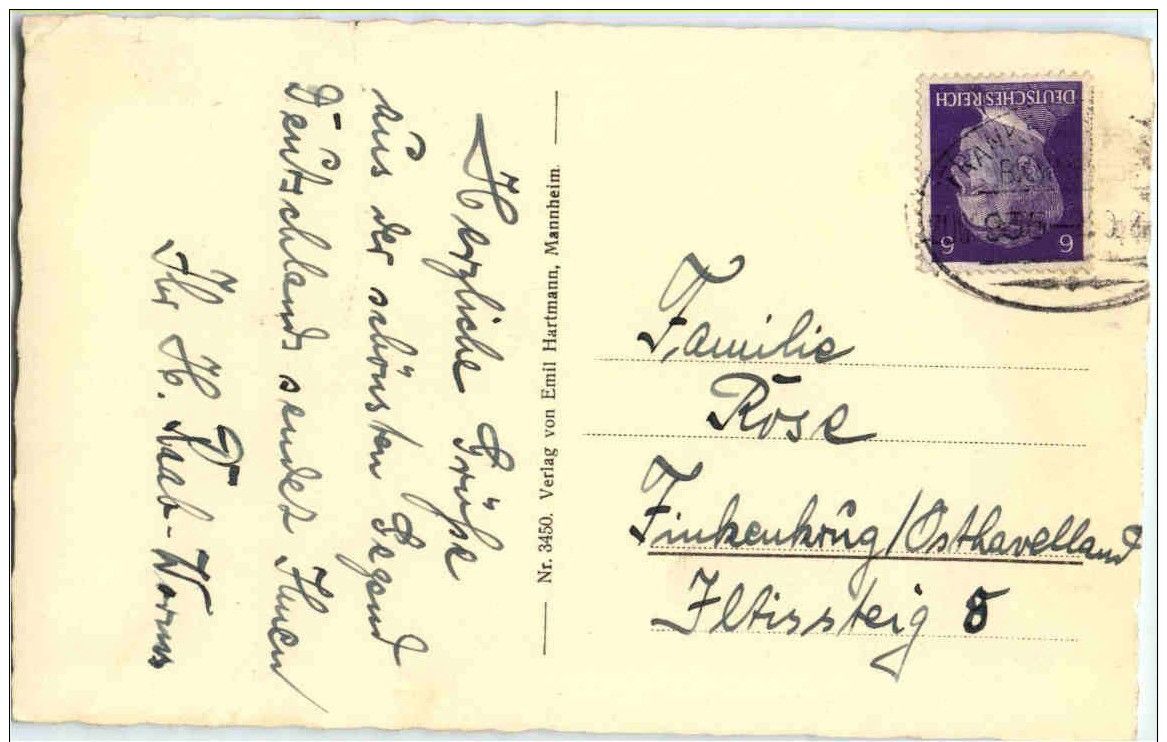 Herzliche Grüße
aus der schönsten Gegend
Deutschlands sendet Ihnen
Ihr H.
Nr. 3450. Verlag von Emil Hartmann, Mannheim.
DEUTSCHES REICH
6 6
Familie
Rose
Finkenkrug/Osthavelland
Iltissteig 8